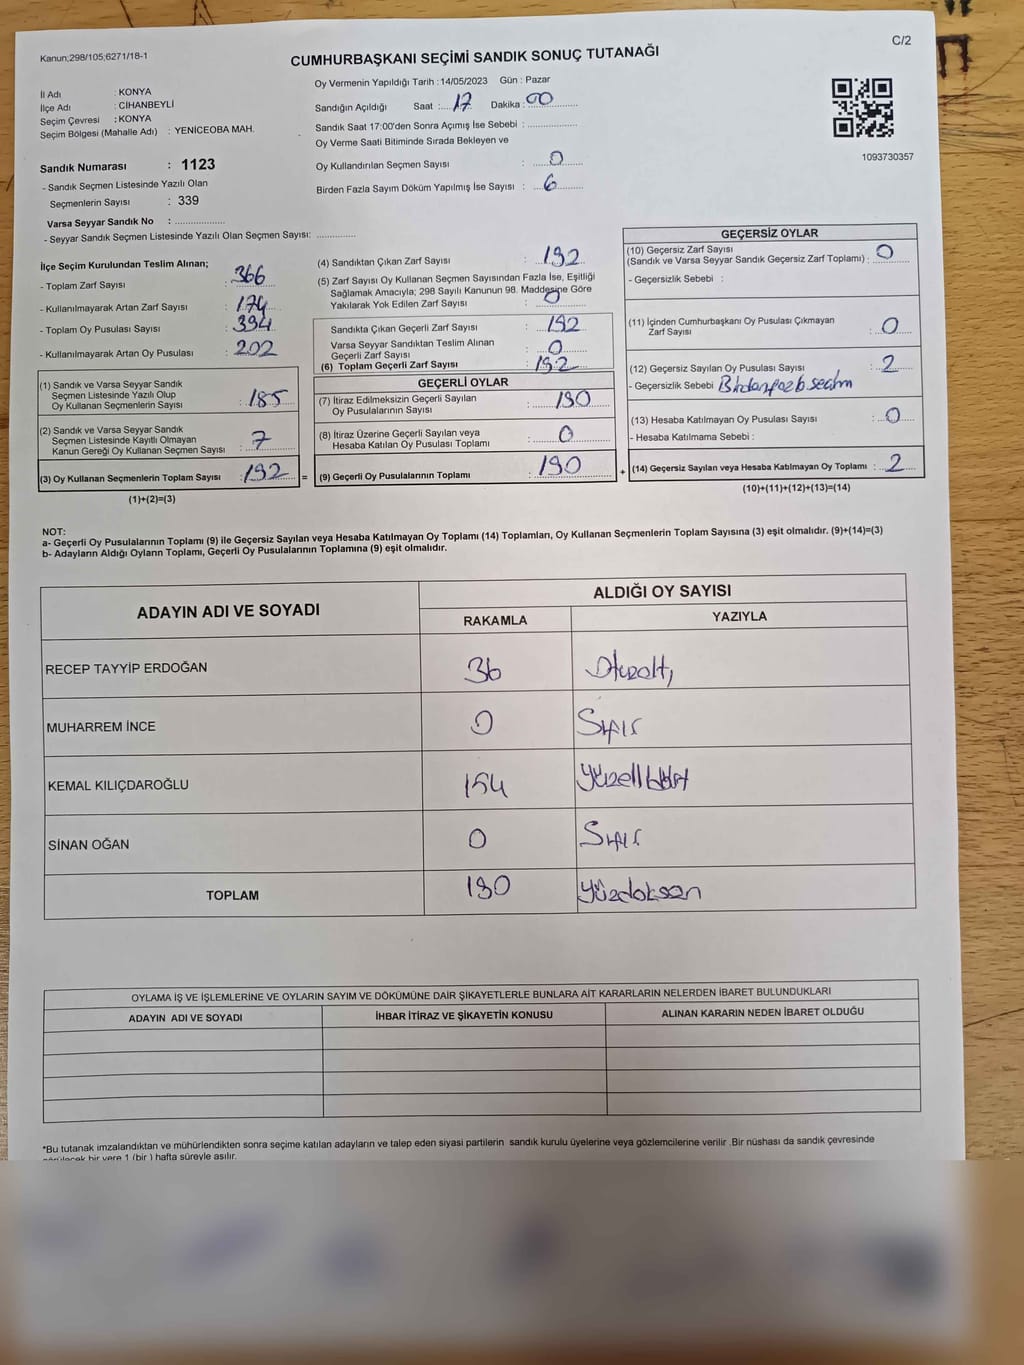 Kanun;298/105;6271/18-1
C/2
CUMHURBAŞKANI SEÇİMİ SANDIK SONUÇ TUTANAĞI
İl Adı : KONYA
İlçe Adı : CİHANBEYLİ
Seçim Çevresi : KONYA
Seçim Bölgesi (Mahalle Adı) : YENICEOBA MAH.
Sandık Numarası : 1123
- Sandık Seçmen Listesinde Yazılı Olan
Seçmenlerin Sayısı : 339
Varsa Seyyar Sandık No : ....................
- Seyyar Sandık Seçmen Listesinde Yazılı Olan Seçmen Sayısı: ..............
Oy Vermenin Yapıldığı Tarih : 14/05/2023 Gün : Pazar
Sandığın Açıldığı Saat : 17 Dakika : 00
Sandık Saat 17:00'den Sonra Açımış İse Sebebi : ....................
Oy Verme Saati Bitiminde Sırada Bekleyen ve
Oy Kullandırılan Seçmen Sayısı : 0
Birden Fazla Sayım Döküm Yapılmış İse Sayısı : 6
1093730357
İlçe Seçim Kurulundan Teslim Alınan;
- Toplam Zarf Sayısı : 366
- Kullanılmayarak Artan Zarf Sayısı : 174
- Toplam Oy Pusulası Sayısı : 394
- Kullanılmayarak Artan Oy Pusulası : 202
(1) Sandık ve Varsa Seyyar Sandık
Seçmen Listesinde Yazılı Olup
Oy Kullanan Seçmenlerin Sayısı : 185
(2) Sandık ve Varsa Seyyar Sandık
Seçmen Listesinde Kayıtlı Olmayan
Kanun Gereği Oy Kullanan Seçmen Sayısı : 7
(3) Oy Kullanan Seçmenlerin Toplam Sayısı : 192
(1)+(2)=(3)
(4) Sandıktan Çıkan Zarf Sayısı : 192
(5) Zarf Sayısı Oy Kullanan Seçmen Sayısından Fazla İse, Eşitliği
Sağlamak Amacıyla; 298 Sayılı Kanunun 98. Maddesine Göre
Yakılarak Yok Edilen Zarf Sayısı : 0
Sandıkta Çıkan Geçerli Zarf Sayısı : 192
Varsa Seyyar Sandıktan Teslim Alınan
Geçerli Zarf Sayısı : 0
(6) Toplam Geçerli Zarf Sayısı : 192
GEÇERLİ OYLAR
(7) İtiraz Edilmeksizin Geçerli Sayılan
Oy Pusulalarının Sayısı : 190
(8) İtiraz Üzerine Geçerli Sayılan veya
Hesaba Katılan Oy Pusulası Toplamı : 0
(9) Geçerli Oy Pusulalarının Toplamı : 190
=
+
GEÇERSİZ OYLAR
(10) Geçersiz Zarf Sayısı
(Sandık ve Varsa Seyyar Sandık Geçersiz Zarf Toplamı) : 0
- Geçersizlik Sebebi :
(11) İçinden Cumhurbaşkanı Oy Pusulası Çıkmayan
Zarf Sayısı : 0
(12) Geçersiz Sayılan Oy Pusulası Sayısı : 2
- Geçersizlik Sebebi
(13) Hesaba Katılmayan Oy Pusulası Sayısı : 0
- Hesaba Katılmama Sebebi :
(14) Geçersiz Sayılan veya Hesaba Katılmayan Oy Toplamı : 2
(10)+(11)+(12)+(13)=(14)
NOT:
a- Geçerli Oy Pusulalarının Toplamı (9) ile Geçersiz Sayılan veya Hesaba Katılmayan Oy Toplamı (14) Toplamları, Oy Kullanan Seçmenlerin Toplam Sayısına (3) eşit olmalıdır. (9)+(14)=(3)
b- Adayların Aldığı Oyların Toplamı, Geçerli Oy Pusulalarının Toplamına (9) eşit olmalıdır.
ADAYIN ADI VE SOYADI
ALDIĞI OY SAYISI
RAKAMLA YAZIYLA
RECEP TAYYİP ERDOĞAN 36 Otuzaltı
MUHARREM İNCE 0 Sıfır
KEMAL KILIÇDAROĞLU 154 Yüzellidört
SİNAN OĞAN 0 Sıfır
TOPLAM 190 Yüzdoksan
OYLAMA İŞ VE İŞLEMLERİNE VE OYLARIN SAYIM VE DÖKÜMÜNE DAİR ŞİKAYETLERLE BUNLARA AİT KARARLARIN NELERDEN İBARET BULUNDUKLARI
ADAYIN ADI VE SOYADI İHBAR İTİRAZ VE ŞİKAYETİN KONUSU ALINAN KARARIN NEDEN İBARET OLDUĞU
*Bu tutanak imzalandıktan ve mühürlendikten sonra seçime katılan adayların ve talep eden siyasi partilerin sandık kurulu üyelerine veya gözlemcilerine verilir .Bir nüshası da sandık çevresinde
görülecek bir yere 1 (bir ) hafta süreyle asılır.